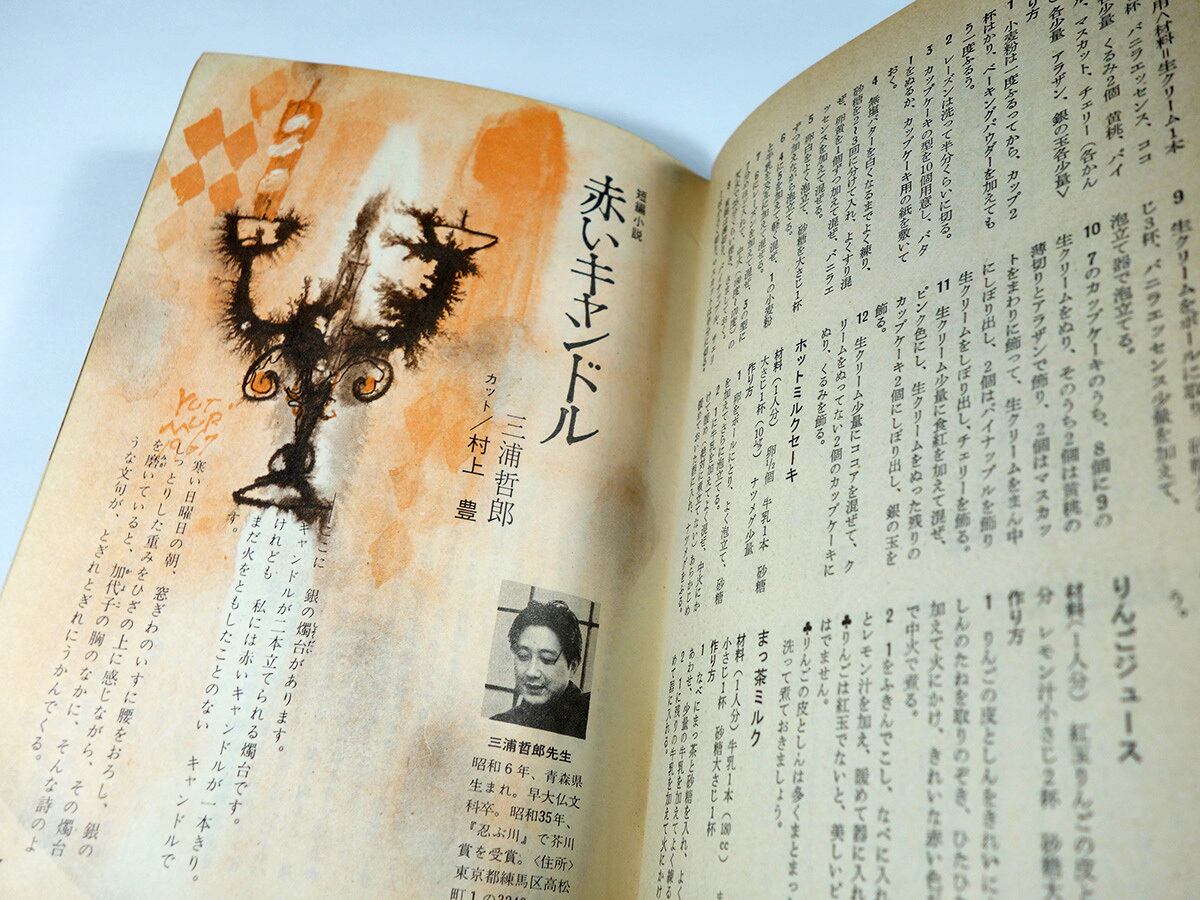 短編小説
赤いキャンドル
三浦哲郎
カット／村上 豊
YUT MUR
1967
ここに 銀の燭台があります。
キャンドルが二本立てられる燭台です。
けれども 私には赤いキャンドルが一本きり。
まだ火をともしたことのない キャンドルで
す。
寒い日曜日の朝、窓ぎわのいすに腰をおろし、銀の
っとりした重みをひざの上に感じながら、その燭台
を磨いていると、加代子の胸のなかに、そんな詩のよ
うな文句が、とぎれとぎれにうかんでくる。
三浦哲郎先生
昭和6年、青森県
生まれ。早大仏文
科卒。昭和35年、
『忍ぶ川』で芥川
賞を受賞。〈住所〉
東京都練馬区高松
町1の
用〈材料＝生クリーム1本
杯 バニラエッセンス、ココ
各少量 くるみ2個 黄桃、パイ
マスカット、チェリー（各かん
各少量 アラザン、銀の玉各少量〉
り方
1 小麦粉は一度ふるってから、カップ2
杯はかり、ベーキングパウダーを加えても
う一度ふるう。
2 レーズンは洗って半分くらいに切る。
3 カップケーキの型を10個用意し、バタ
ーをぬるか、カップケーキ用の紙を敷いて
おく。
4 無塩バターを白くなるまでよく練り、
砂糖を2～3回に分けて入れ、よくすり混
ぜ、卵黄を1個ずつ加えて混ぜ、バニラエ
ッセンスを加えて混ぜる。
5 卵白をよく泡立て、砂糖を大さじ1杯
ずつ加えながら泡立てる。
6 4に5を加えて軽く混ぜ、1の小麦粉
9 生クリームをボールに
じ3杯、バニラエッセンス少量を加えて、
泡立て器で泡立てる。
10 7のカップケーキのうち、8個に9の
生クリームをぬり、そのうち2個は黄桃の
薄切りとアラザンで飾り、2個はマスカッ
トをまわりに飾って、生クリームをまん中
にしぼり出し、2個はパイナップルを飾り
生クリームをしぼり出し、チェリーを飾る。
11 生クリーム少量に食紅を加えて混ぜ、
ピンク色にし、生クリームをぬった残りの
カップケーキ2個にしぼり出し、銀の玉を
飾る。
12 生クリーム少量にココアを混ぜて、ク
リームをぬってない2個のカップケーキに
ぬり、くるみを飾る。
ホットミルクセーキ
材料（1人分） 卵½個 牛乳1本 砂糖
大さじ1杯（10㌘） ナツメグ少量
作り方
1 卵をボールにとり、よく泡立て、砂糖
を加えてさらに泡立てる。
2 1に牛乳を加えてよく混ぜ、中火にか
う。
りんごジュース
材料（1人分） 紅玉りんごの皮と
分 レモン汁小さじ2杯 砂糖大
作り方
1 りんごの皮としんをきれいに
しんのたねを取りのぞき、ひたひた
加えて火にかけ、きれいな赤い色が
で中火で煮る。
2 1をふきんでこし、なべに入れ
とレモン汁を加え、暖めて器に入れ
♣りんごは紅玉でないと、美しいピ
はでません。
♣りんごの皮としんは多くまとまっ
洗って煮ておきましょう。
まっ茶ミルク
材料（1人分）牛乳1本（180cc）
小さじ1杯 砂糖大さじ1杯
作り方
1 なべにまっ茶と砂糖を入れ、よく
あわせ、少量の牛乳を加えてよく練る
2 1に残りの牛乳を加えて火にかけ
めて器に入れる。